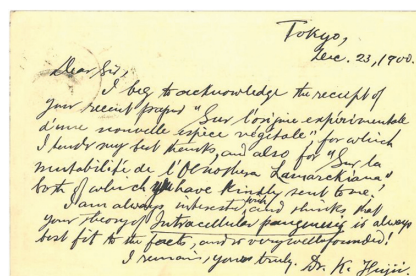 Tokyo,
Dec. 23, 1900.
Dear Sir,
I beg to acknowledge the receipt of
your recent paper "Sur l'origine expérimentale
d'une nouvelle espèce végétale" for which
I tender my best thanks, and also for "Sur la
mutabilité de l'Oenothera Lamarckiana"
both of which you have kindly sent to me!
I am always interested and thinks that
your theory of Intracellular pangenesis is always
best fit to the facts, and is very well founded!
I remain, yours truly. Dr. K. Fujii